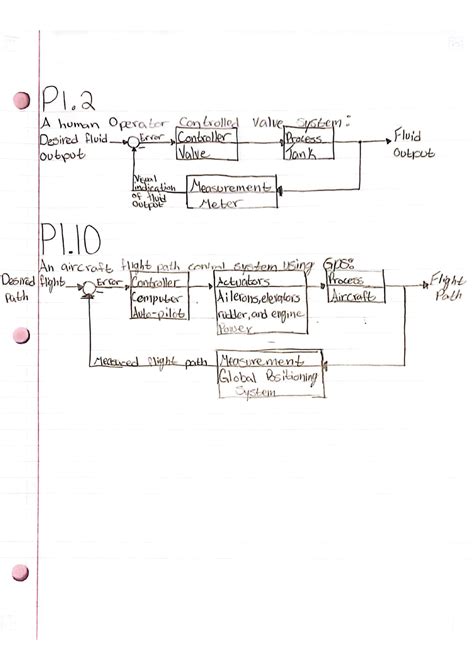 P1.2
A human Operator Controlled Valve System:
Desired fluid output
Error
Controller
Valve
Process
Tank
Fluid
Output
Visual
indication
of fluid
Output
Measurement
Meter
P1.10
An aircraft flight path control system using GPS:
Desired flight
Path
Error
Controller
Computer
Auto-pilot
Actuators
Ailerons, elevators
rudder, and engine
Power
Process
Aircraft
Flight
Path
Measured flight path
Measurement
Global Positioning
System